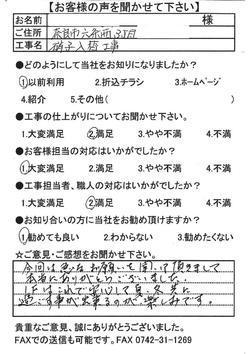 【お客様の声を聞かせて下さい】
お名前 様
ご住所 奈良市六条西3丁目
工事名 硝子入替工事
●どのようにして当社をお知りになりましたか？
①以前利用 2.折込チラシ 3.ホームページ
4.紹介 5.その他( )
●工事の仕上がりについてお聞かせ下さい。
1.大変満足 ②満足 3.やや不満 4.不満
●お客様担当の対応はいかがでしたか？
1.大変満足 ②満足 3.やや不満 4.不満
●工事担当者、職人の対応はいかがでしたか？
1.大変満足 ②満足 3.やや不満 4.不満
●お知り合いの方に当社をお勧め頂けますか？
①勧めても良い 2.わからない 3.勧めたくない
☆ご意見・ご感想をお聞かせ下さい。
今回は急なお願いを聞いて頂きまして
本当にありがとうございました。
これで安心して夏、冬共に
過ごす事が出来るのが楽しみです。
貴重なご意見、誠にありがとうございました。
FAXでの送信も可能です。FAX 0742-31-1269